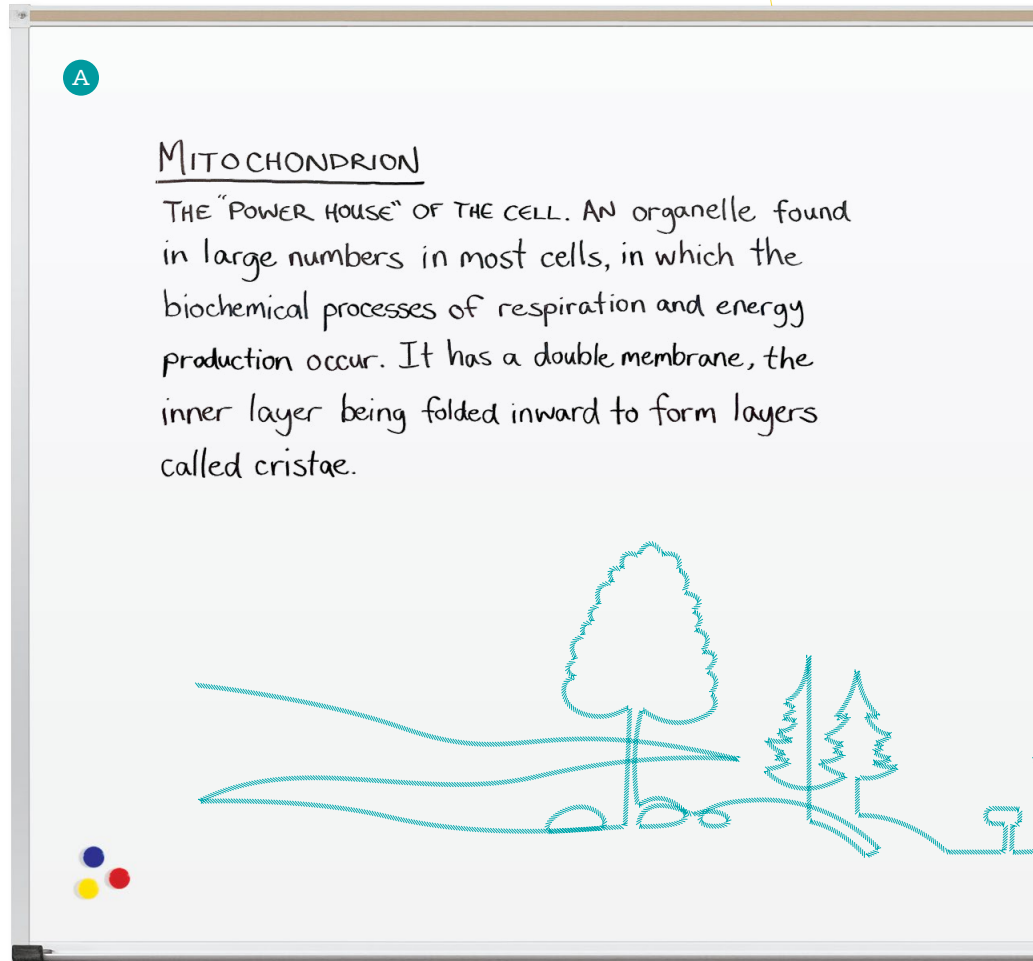 A
MITOCHONDRION
THE "POWER HOUSE" OF THE CELL. AN organelle found
in large numbers in most cells, in which the
biochemical processes of respiration and energy
production occur. It has a double membrane, the
inner layer being folded inward to form layers
called cristae.